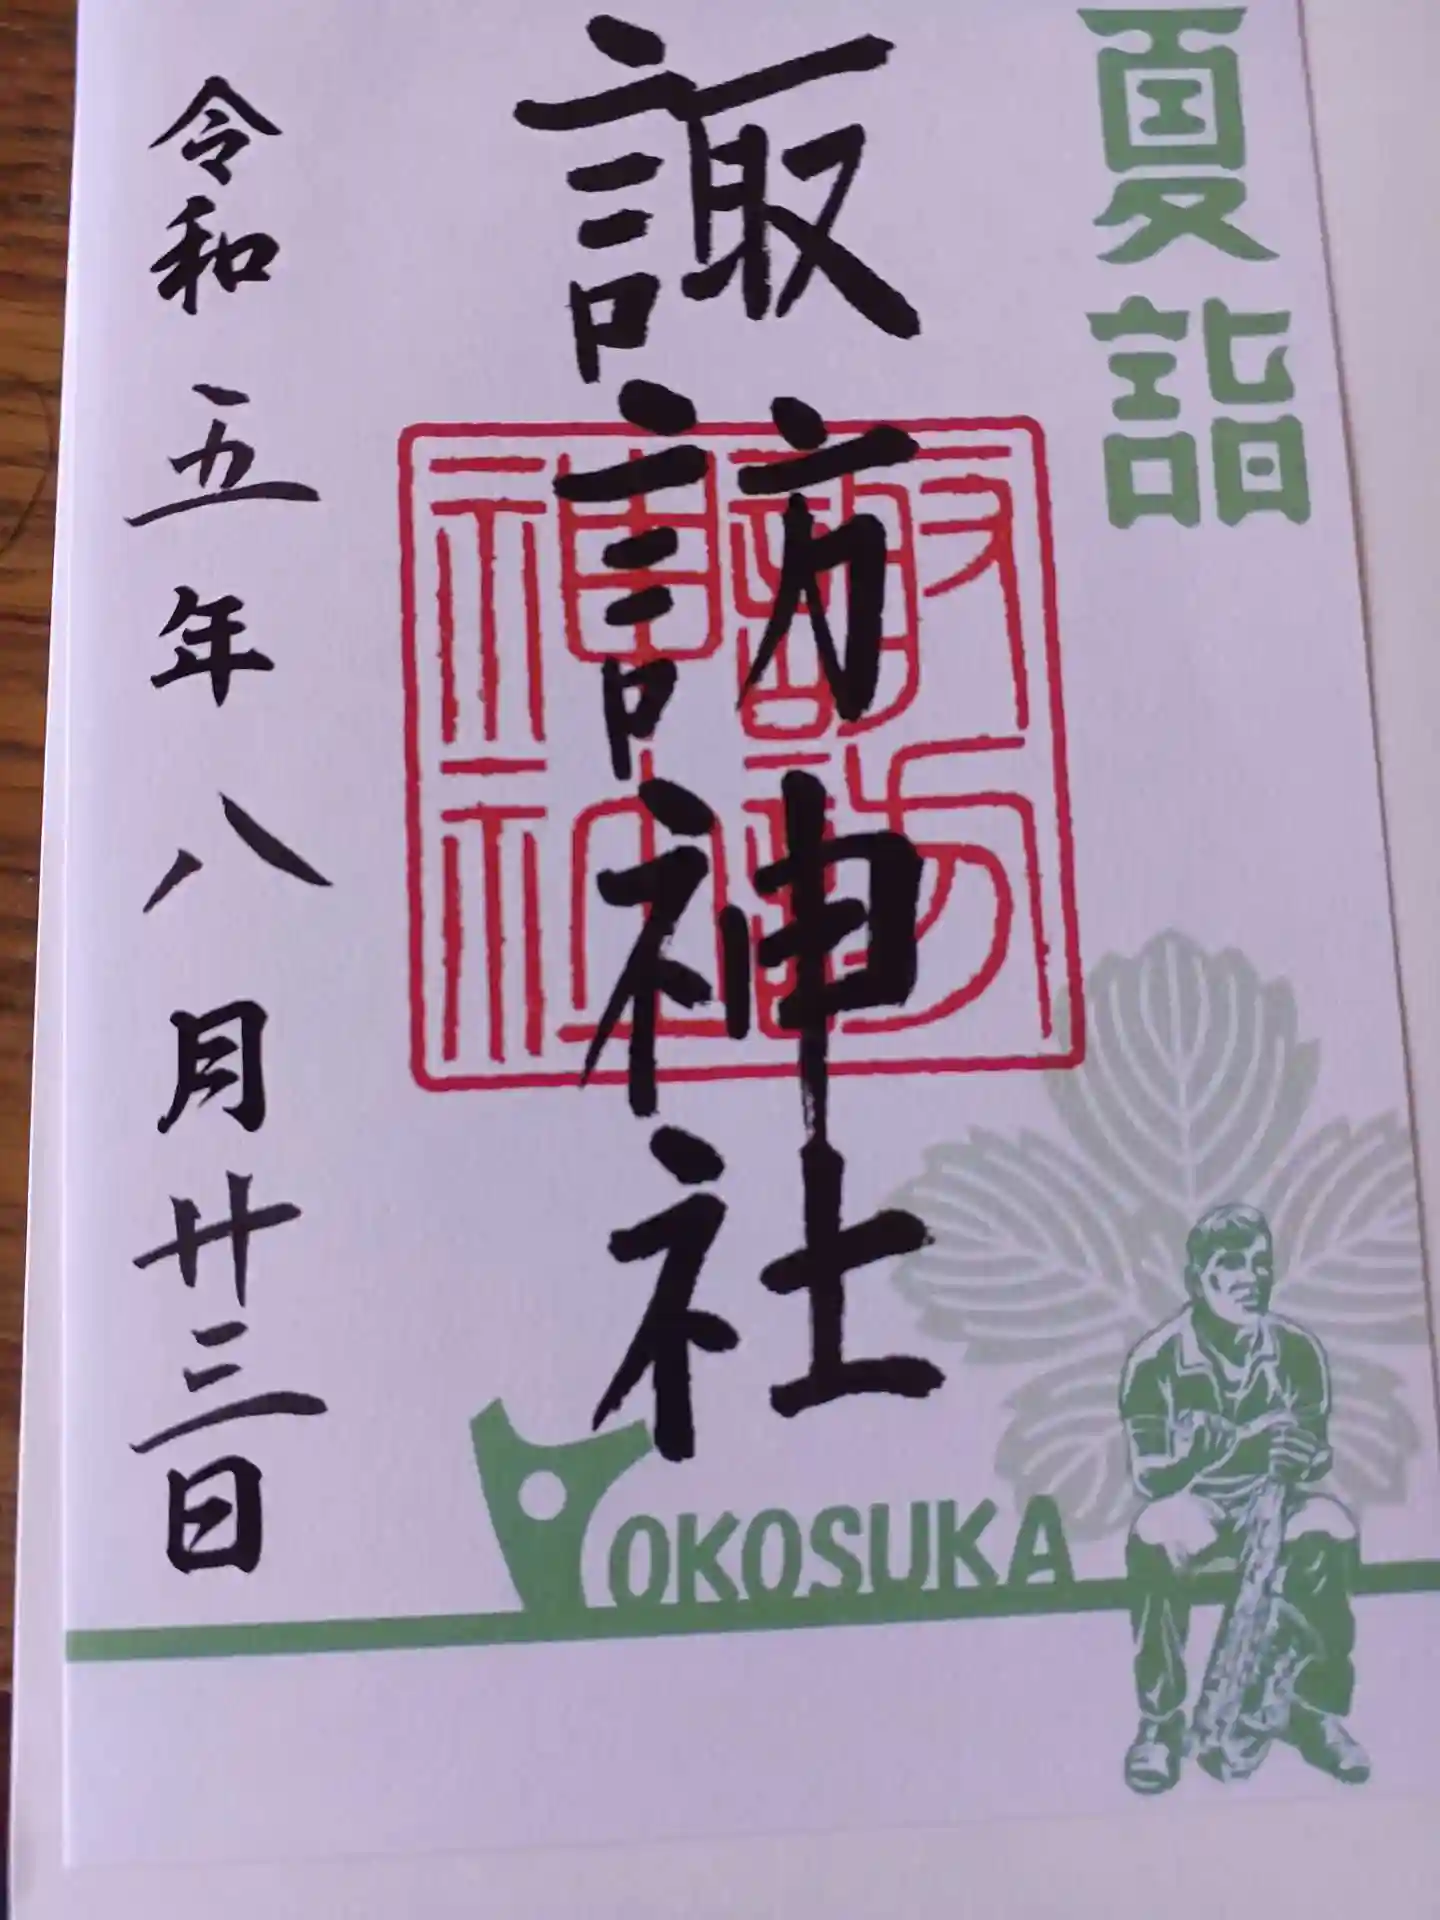 夏詣
諏訪神社
諏訪神社
令和五年八月廿三日
YOKOSUKA